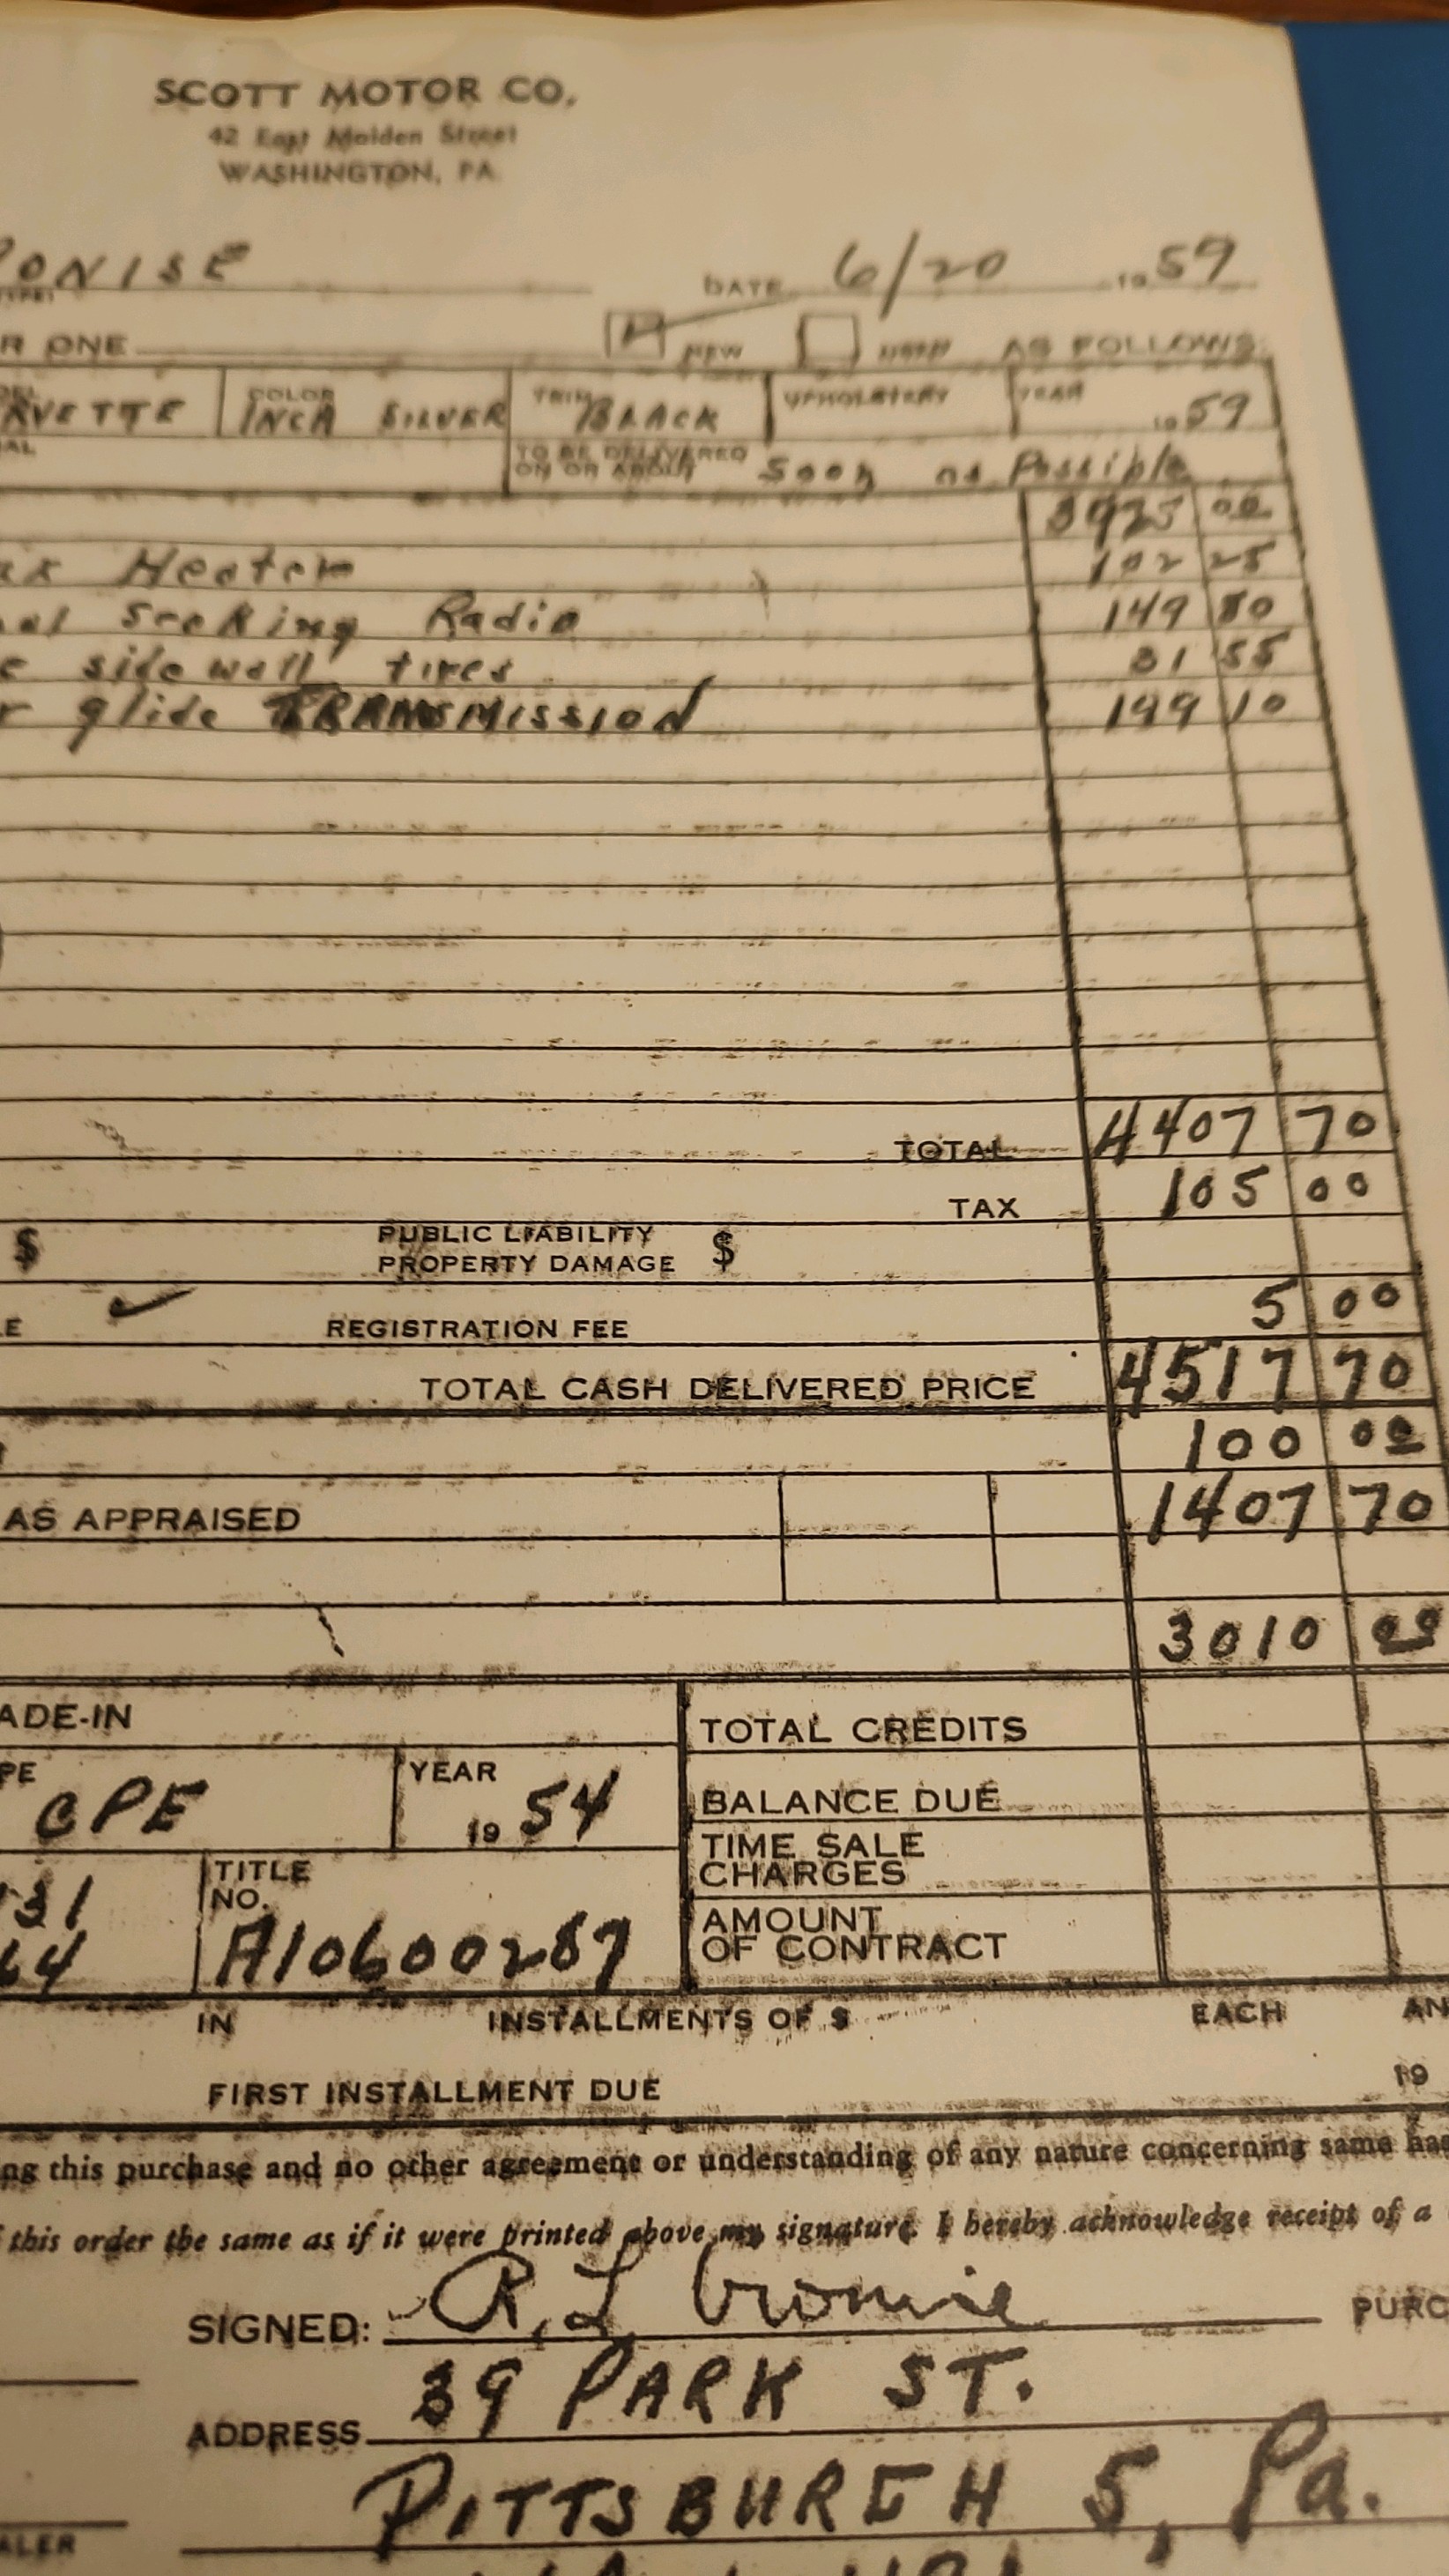 SCOTT MOTOR CO.
42 East Maiden Street
WASHINGTON, PA.
RONISE DATE 6/20 1959
R ONE NEW AS FOLLOWS:
RVETTE COLOR INCA SILVER TRIM BLACK UPHOLSTERY YEAR 1959
TO BE DELIVERED ON OR ABOUT Soon as Possible
3925 00
Heater 102 25
Seeking Radio 149 80
side wall tires 31 55
glide TRANSMISSION 199 10
TOTAL 4407 70
TAX 105 00
$ PUBLIC LIABILITY PROPERTY DAMAGE $
REGISTRATION FEE 5 00
TOTAL CASH DELIVERED PRICE 4517 70
100 00
AS APPRAISED 1407 70
3010 00
ADE-IN TOTAL CREDITS
PE CPE YEAR 1954 BALANCE DUE
TIME SALE CHARGES
31 TITLE NO.
64 A10600287 AMOUNT OF CONTRACT
IN INSTALLMENTS OF $ EACH AN
FIRST INSTALLMENT DUE 19
ng this purchase and no other agreement or understanding of any nature concerning same has
this order the same as if it were printed above my signature. I hereby acknowledge receipt of a
SIGNED: R. L. Cronise PURC
ADDRESS 39 PARK ST.
PITTSBURGH 5, Pa.
ALER